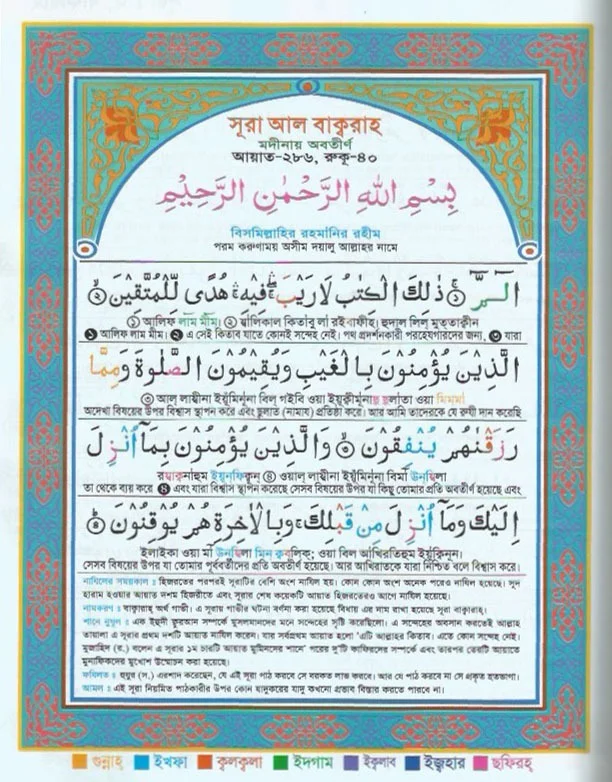 সূরা আল বাক্বরাহ
মদীনায় অবতীর্ণ
আয়াত-২৮৬, রুকু-৪০
بِسْمِ اللهِ الرَّحْمٰنِ الرَّحِيْمِ
বিসমিল্লাহির রহমানির রহীম
পরম করুণাময় অসীম দয়ালু আল্লাহর নামে
الٓـمّٓ ۝١ ذٰلِكَ الْكِتٰبُ لَا رَيْبَ ۛ فِيْهِ ۛ هُدًى لِّلْمُتَّقِيْنَ ۝٢
① আলিফ লাম মীম। ② যালিকাল কিতাবু লা রইবাফীহ। হুদাল লিল্ মুত্তাক্বীন
❶ আলিফ লাম মীম। ❷ এ সেই কিতাব যাতে কোনই সন্দেহ নেই। পথ প্রদর্শনকারী পরহেযগারদের জন্য, ❸ যারা
الَّذِيْنَ يُؤْمِنُوْنَ بِالْغَيْبِ وَيُقِيْمُوْنَ الصَّلٰوةَ وَمِمَّا
③ আল্ লাযীনা ইয়ু'মিনূনা বিল্ গইবি ওয়া ইয়ুক্বীমূনাছ্ ছলাতা ওয়া মিম্মা
অদেখা বিষয়ের উপর বিশ্বাস স্থাপন করে এবং ছলাত (নামায) প্রতিষ্ঠা করে। আর আমি তাদেরকে যে রুযী দান করেছি
رَزَقْنٰهُمْ يُنْفِقُوْنَ ۝٣ وَالَّذِيْنَ يُؤْمِنُوْنَ بِمَآ اُنْزِلَ
রযাক্বনাহুম ইয়ুনফিকুন ④ ওয়াল্ লাযীনা ইয়ু'মিনূনা বিমা উনযিলা
তা থেকে ব্যয় করে ❹ এবং যারা বিশ্বাস স্থাপন করেছে সেসব বিষয়ের উপর যা কিছু তোমার প্রতি অবতীর্ণ হয়েছে এবং
اِلَيْكَ وَمَآ اُنْزِلَ مِنْ قَبْلِكَ ۚ وَبِالْاٰخِرَةِ هُمْ يُوْقِنُوْنَ ۝٤
ইলাইকা ওয়া মা উনযিলা মিন ক্ববলিক; ওয়া বিল আখিরতিহুম ইয়ূক্বিনূন।
সেসব বিষয়ের উপর যা তোমার পূর্ববর্তীদের প্রতি অবতীর্ণ হয়েছে। আর আখিরাতকে যারা নিশ্চিত বলে বিশ্বাস করে।
নাযিলের সময়কাল : হিজরতের পরপরই সূরাটির বেশি অংশ নাযিল হয়। কোন কোন অংশ অনেক পরেও নাযিল হয়েছে। সুদ
হারাম হওয়ার আয়াত দশম হিজরীতে এবং সূরার শেষ কয়েকটি আয়াত হিজরতেরও আগে নাযিল হয়েছে।
নামকরণ : বাক্বারাহ্ অর্থ গাভী। এ সূরায় গাভীর ঘটনা বর্ণনা করা হয়েছে বিধায় এর নাম রাখা হয়েছে সূরা বাক্বারাহ্।
শানে নুযূল : এক ইহুদী কুরআন সম্পর্কে মুসলমানদের মনে সন্দেহের সৃষ্টি করেছিলো। এ সন্দেহের অবসান করতেই আল্লাহ
তায়ালা এ সূরার প্রথম দশটি আয়াত নাযিল করেন। যার সর্বপ্রথম আয়াত হলো 'এটি আল্লাহর কিতাব। এতে কোন সন্দেহ নেই।
মুজাহিদ (র.) বলেন এ সূরার ১ম চারটি আয়াত মুমিনদের শানে' পরের দু'টি কাফিরদের সম্পর্কে এবং তারপর তেরটি আয়াতে
মুনাফিকদের মুখোশ উন্মোচন করা হয়েছে।
ফযিলত : হুযুর (স.) এরশাদ করেছেন, যে এই সূরা পাঠ করবে সে বরকত লাভ করবে। আর যে পাঠ করবে না সে প্রকৃত হতভাগা।
আমল : এই সূরা নিয়মিত পাঠকারীর উপর কোন যাদুকরের যাদু কখনো প্রভাব বিস্তার করতে পারবে না।
গুন্নাহ্ ইখফা ক্বলক্বলা ইদগাম ইক্বলাব ইজ্বহার ছফিরহ্